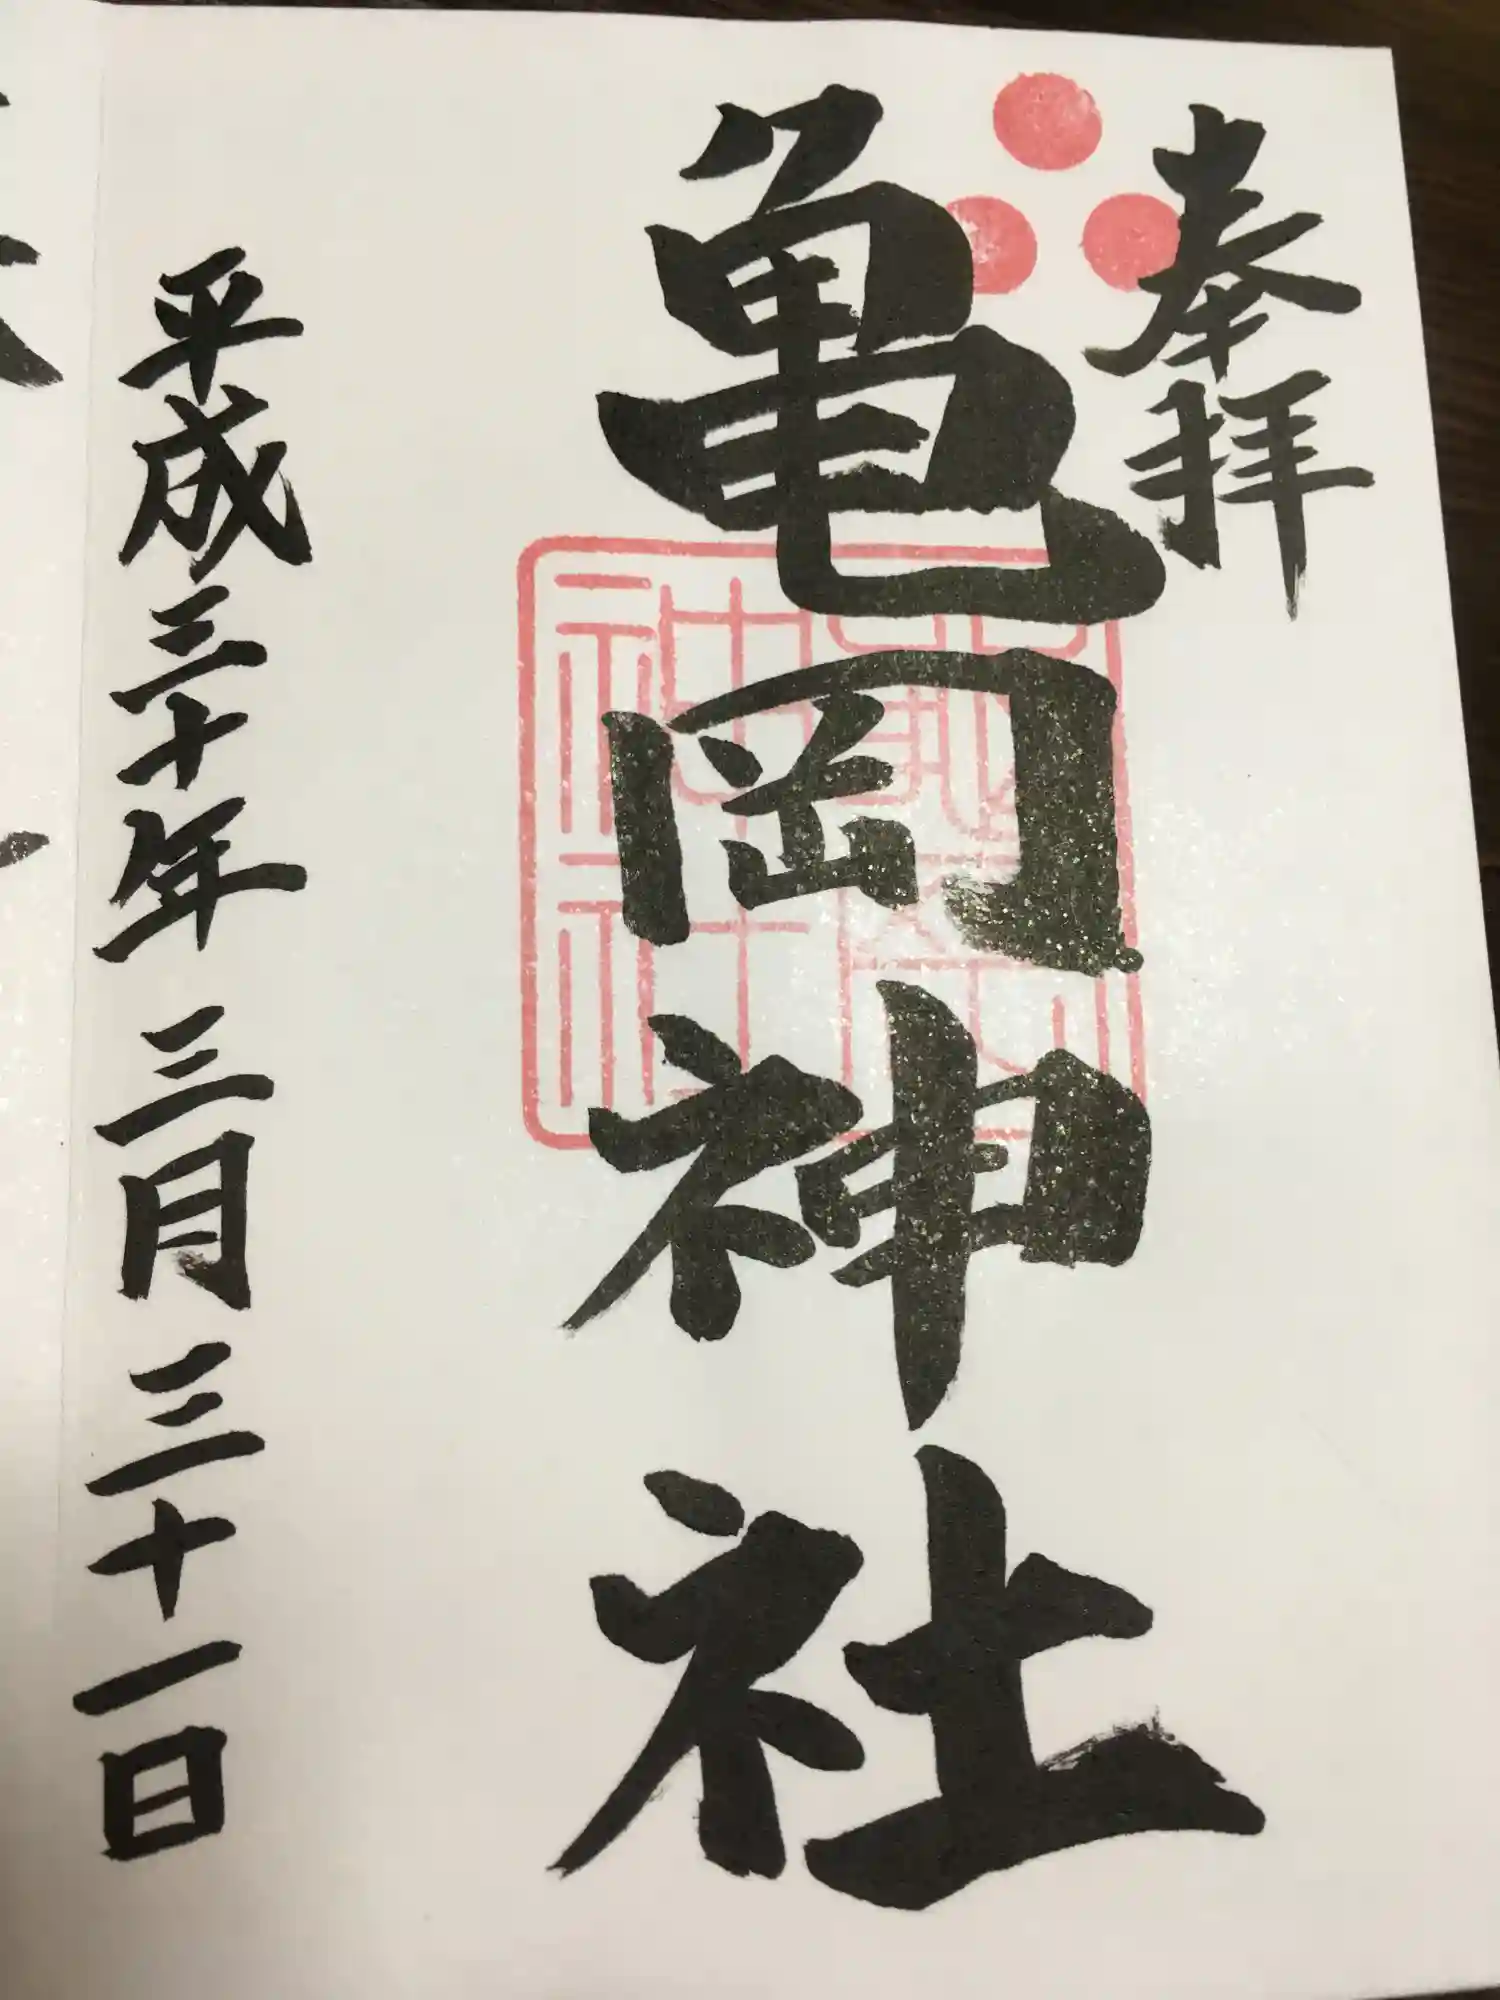 奉拝
亀岡神社
平成三十年三月三十一日